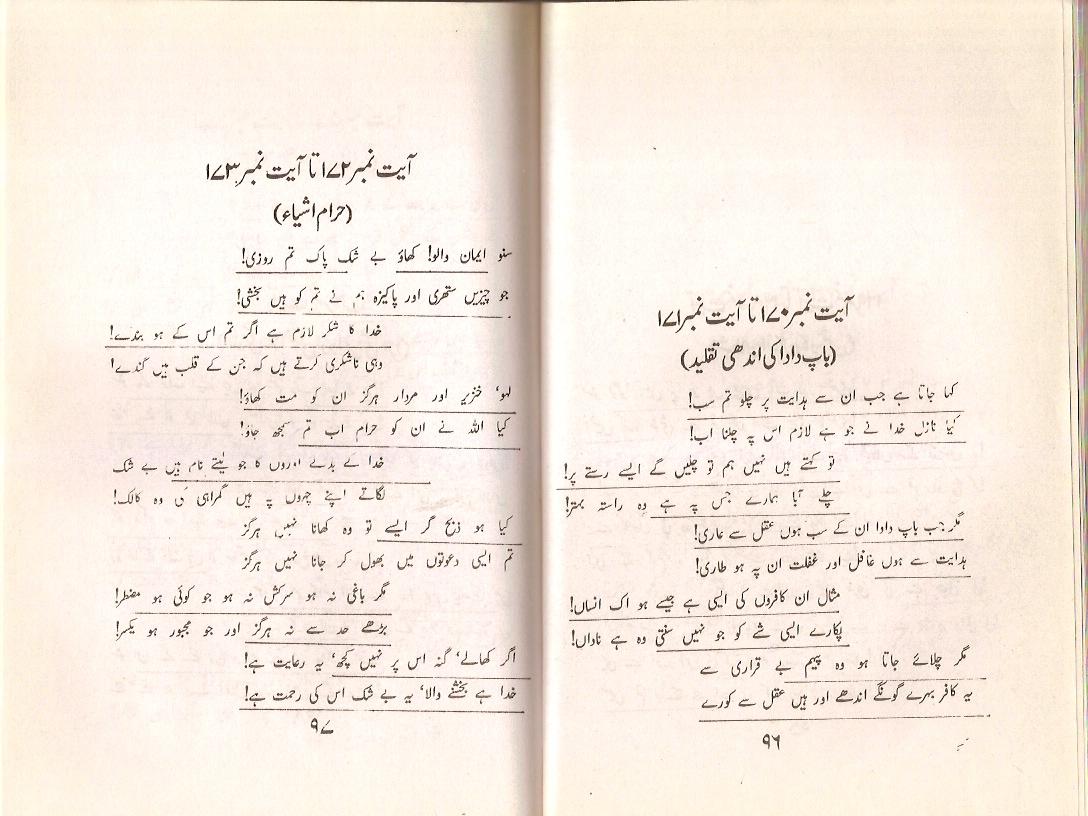 آیت نمبر ۱۷۰ تا آیت نمبر ۱۷۱
(باپ دادا کی اندھی تقلید)
کہا جاتا ہے جب ان سے ہدایت پر چلو تم سب!
کیا نازل خدا نے جو ہے لازم اس پہ چلنا اب!
تو کہتے ہیں نہیں ہم تو چلیں گے ایسے رستے پر!
چلے آبا ہمارے جس پہ ہے وہ راستہ بہتر!
مگر جب باپ دادا ان کے سب ہوں عقل سے عاری!
ہدایت سے ہوں غافل اور غفلت ان پہ ہو طاری!
مثال ان کافروں کی ایسی ہے جیسے ہو اک انساں!
پکارے ایسی شے کو جو نہیں سنتی وہ ہے ناداں!
مگر چلائے جاتا ہو وہ پیہم بے قراری سے
یہ کافر بہرے گونگے اندھے اور ہیں عقل سے کورے
۹۶
آیت نمبر ۱۷۲ تا آیت نمبر ۱۷۳
(حرام اشیاء)
سنو ایمان والو! کھاؤ بے شک پاک تم روزی!
جو چیزیں ستھری اور پاکیزہ ہم نے تم کو ہیں بخشی!
خدا کا شکر لازم ہے اگر تم اس کے ہو بندے!
وہی ناشکری کرتے ہیں کہ جن کے قلب ہیں گندے!
لہو‘ خنزیر اور مردار ہرگز ان کو مت کھاؤ!
کیا اللہ نے ان کو حرام اب تم سمجھ جاؤ!
خدا کے بدلے اوروں کا جو لیتے نام ہیں بے شک
لگاتے اپنے چہروں پہ ہیں گمراہی کی وہ کالک!
کیا ہو ذبح گر ایسے تو وہ کھانا نہیں ہرگز
تم ایسی دعوتوں میں بھول کر جانا نہیں ہرگز
مگر باغی نہ ہو سرکش نہ ہو جو کوئی ہو مضطر!
بڑھے حد سے نہ ہرگز اور جو مجبور ہو یکسر!
اگر کھالے‘ گنہ اس پر نہیں کچھ‘ یہ رعایت ہے!
خدا ہے بخشنے والا‘ یہ بے شک اس کی رحمت ہے!
۹۷